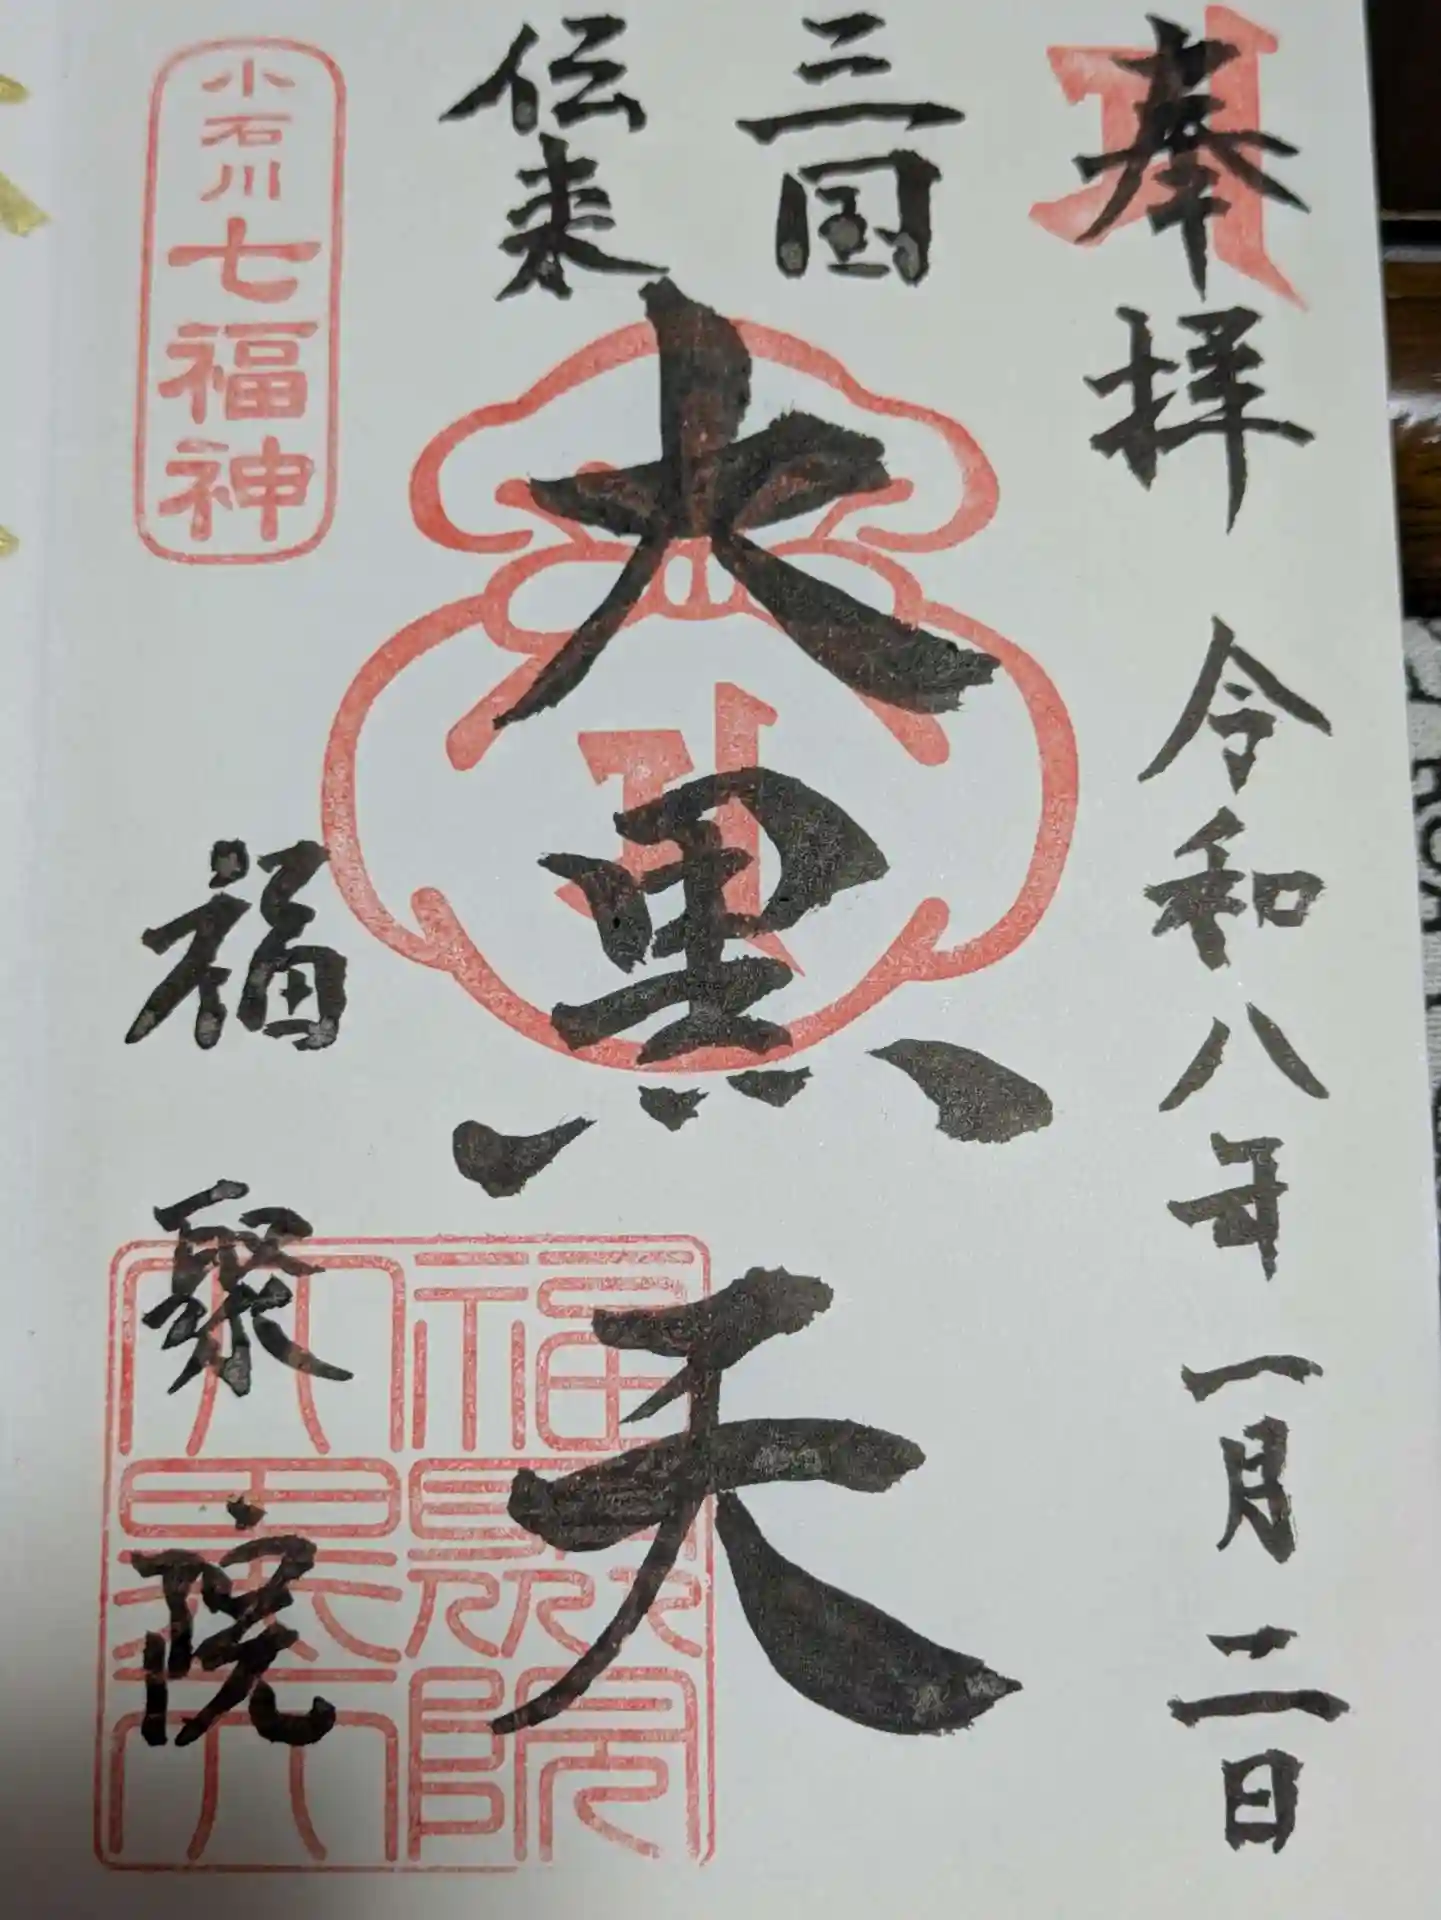 奉拝 令和八年一月二日
三国
伝来
大黒天
小石川七福神
福聚院
福聚院
大黒天